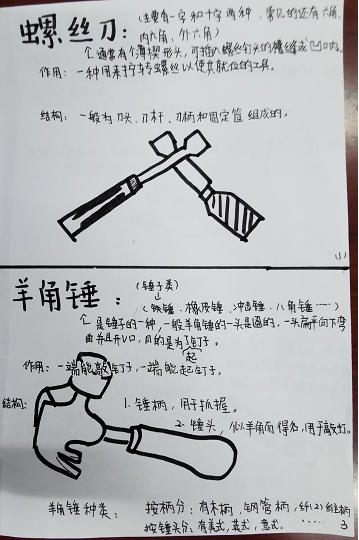 螺丝刀：（主要有一字和十字两种，常见的还有六角，
内六角，外六角）
个通常有个薄楔形头，可插入螺丝钉头的槽缝或凹口内。
作用：一种用来拧转螺丝以使其就位的工具。
结构：一般为刀头、刀杆、刀柄和固定管组成的。
(1)
羊角锤：（锤子类）
（铁锤、橡皮锤、冲击锤、八角锤……）
个是锤子的一种，一般羊角锤的一头是圆的，一头扁平向下弯
曲并且开V口，目的是为了起钉子。
作用：一端能敲钉子，一端能起钉子。
结构：
1. 锤柄，用于抓握。
2. 锤头，似羊角而得名，用于敲钉。
羊角锤种类：
按柄分：有木柄，钢管柄，纤(2)维柄
按锤头分：有美式，英式，意式。……
3